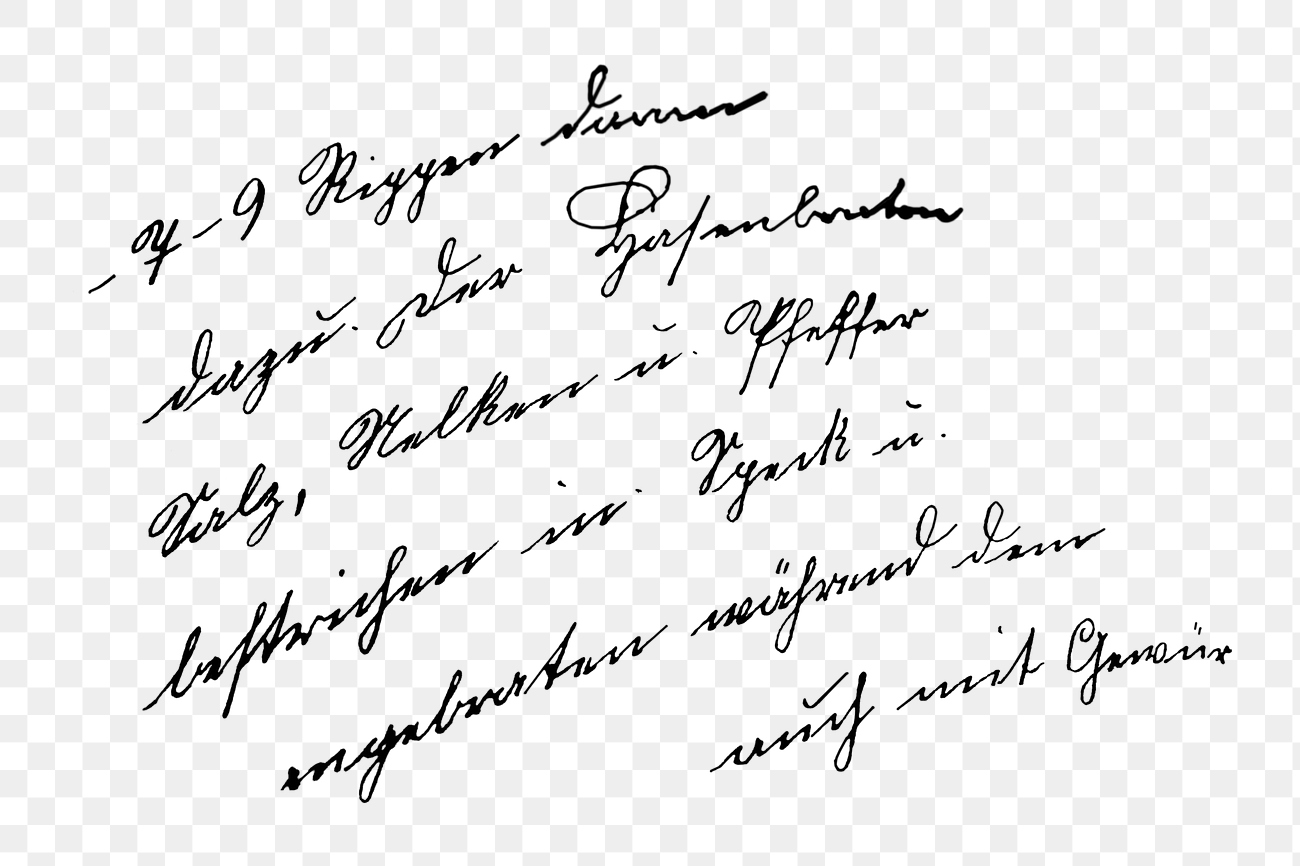 - 7 - 9 Rippen daran
dazu. Der Hasenbraten
Salz, Nelken u. Pfeffer
bestrichen in Speck u.
angebraten während dem
auch mit Gewür